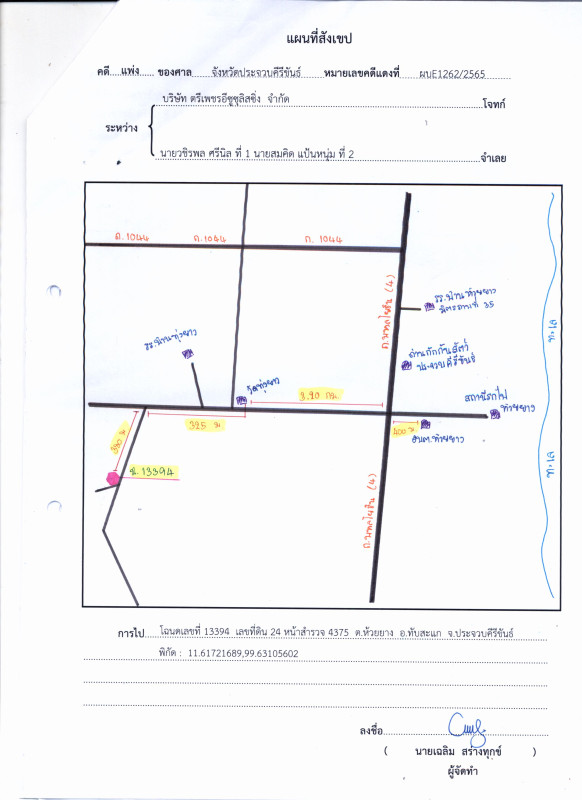 แผนที่สังเขป
คดี แพ่ง ของศาล จังหวัดประจวบคีรีขันธ์ หมายเลขคดีแดงที่ ผบE1262/2565
บริษัท ตรีเพชรอีซูซุลิสซิ่ง จำกัด โจทก์
ระหว่าง
นายวชิรพล ศรีนิล ที่ 1 นายสมคิด แป้นหนุ่ม ที่ 2 จำเลย
ถ.1044 ถ.1044 ถ. 1044
ถ.เพชรเกษม (4)
มิตรภาพที่ 35
ทะเล
ด่านกักกันสัตว์
ประจวบคีรีขันธ์
สถานีรถไฟ
ห้วยยาง
3.20 กม.
325 ม.
400 ม.
อบต.ห้วยยาง
น. 13394
ทะเล
การไป โฉนดเลขที่ 13394 เลขที่ดิน 24 หน้าสำรวจ 4375 ต.ห้วยยาง อ.ทับสะแก จ.ประจวบคีรีขันธ์
พิกัด : 11.61721689,99.63105602
ลงชื่อ
( นายเฉลิม สร้างทุกข์ )
ผู้จัดทำ